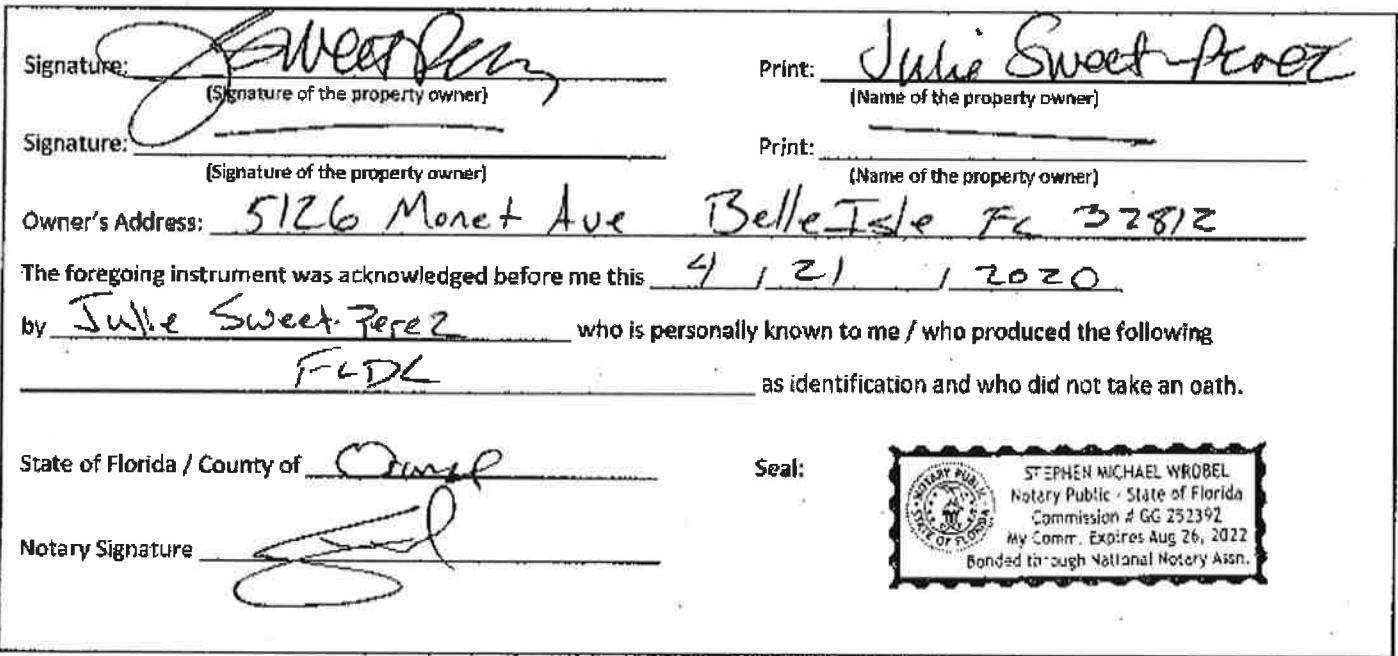 Signature: JSweetPerez Print: Julie Sweet-Perez
(Signature of the property owner) (Name of the property owner)
Signature: Print:
(Signature of the property owner) (Name of the property owner)
Owner's Address: 5126 Monet Ave Belle Isle FL 32812
The foregoing instrument was acknowledged before me this 4 / 21 / 2020
by Julie Sweet-Perez who is personally known to me / who produced the following
FLDL as identification and who did not take an oath.
State of Florida / County of Orange Seal:
Notary Signature
NOTARY PUBLIC
STATE OF FLORIDA
STEPHEN MICHAEL WROBEL
Notary Public - State of Florida
Commission # GG 252392
My Comm. Expires Aug 26, 2022
Bonded through National Notary Assn.